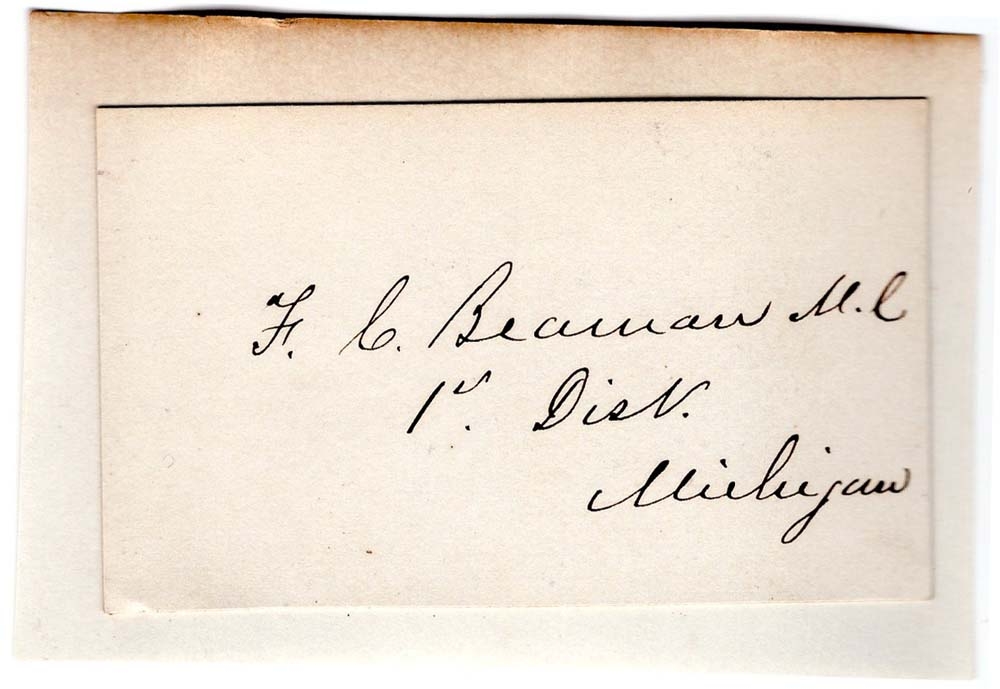 F. C. Beaman M.C
1st. Dist.
Michigan